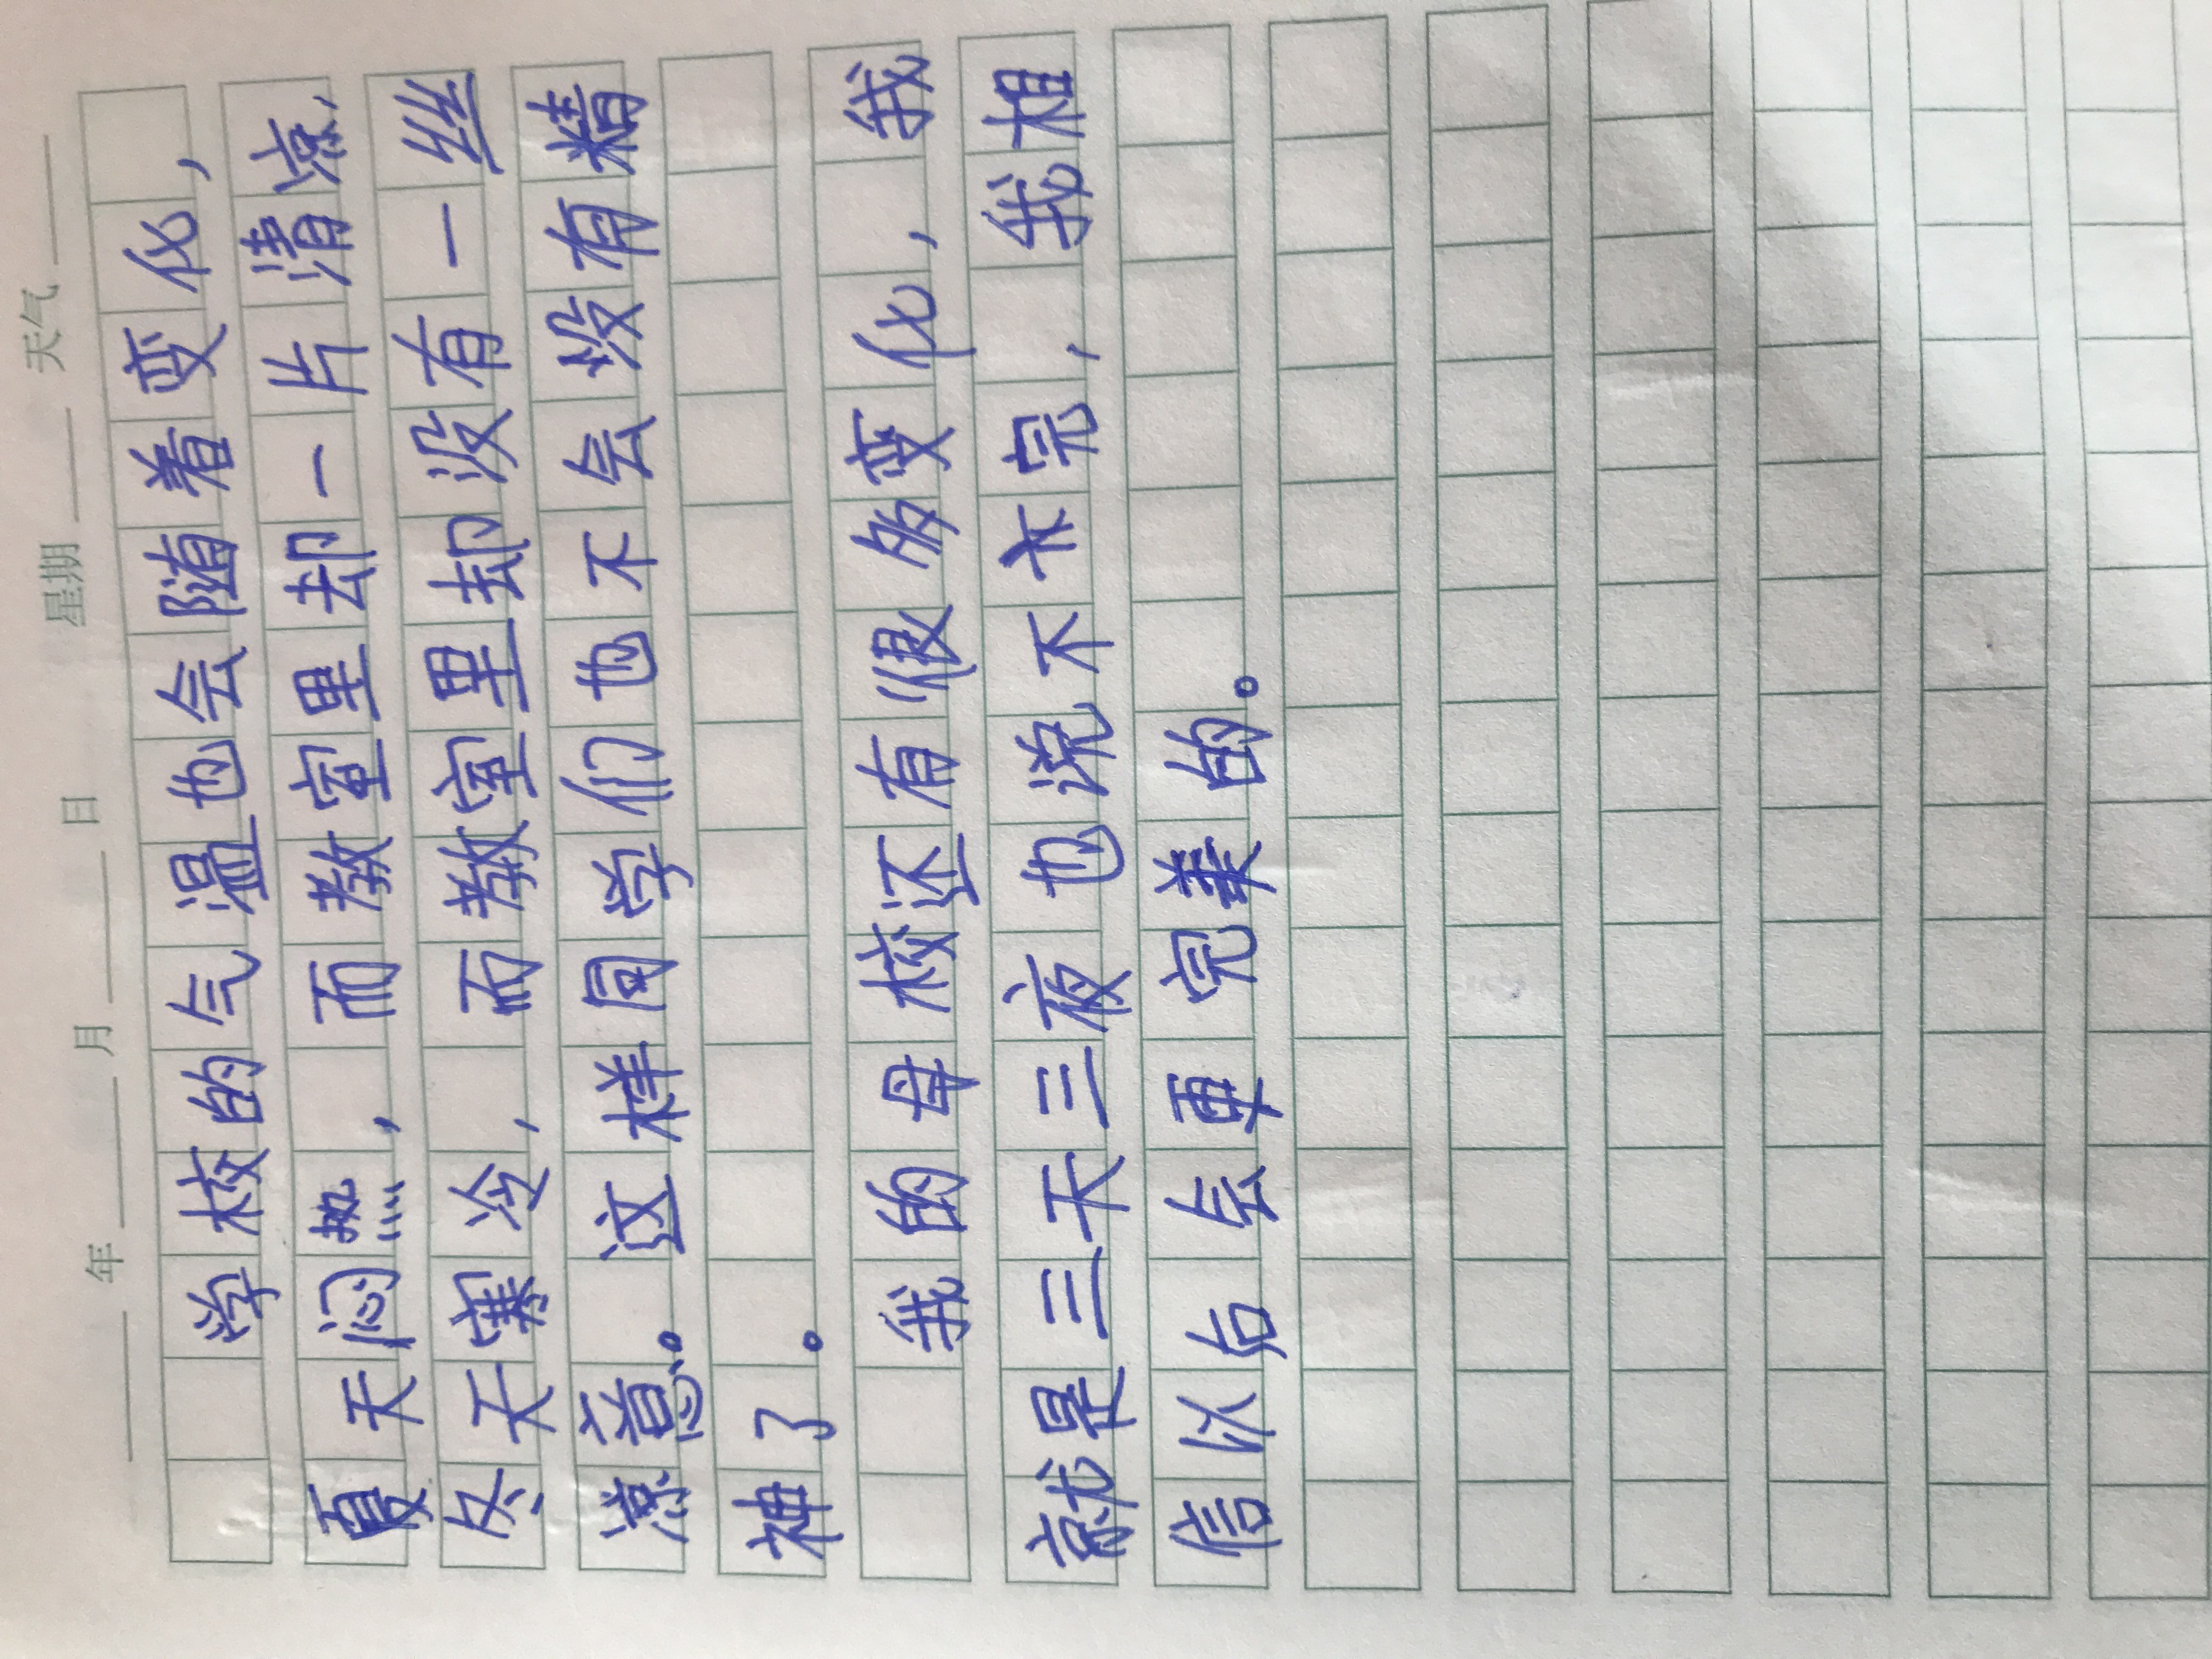 年 月 日 星期 天气
学校的气温也会随着变化，
夏天闷热，而教室里却一片清凉，
冬天寒冷，而教室里却没有一丝
凉意。这样同学们也不会没有精
神了。
我的母校还有很多变化，我
就是三天三夜也说不完，我相
信以后会更完美的。